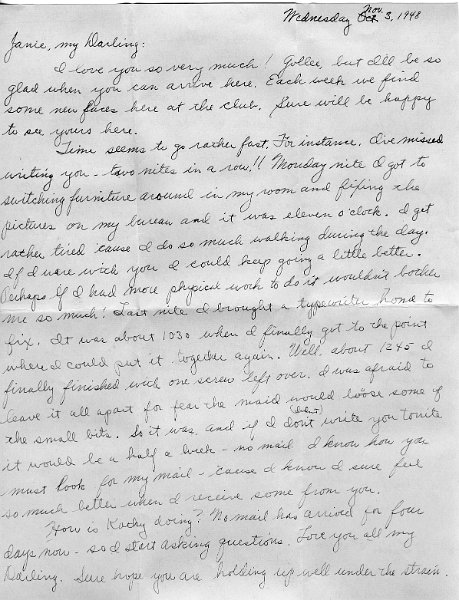 Wednesday Oct Nov. 3, 1948
Janie, my Darling:
I love you so very much! Gollee, but I'll be so
glad when you can arrive here. Each week we find
some new faces here at the club. Sure will be happy
to see yours here.
Time seems to go rather fast. For instance, I've missed
writing you - two nites in a row!! Monday nite I got to
switching furniture around in my room and fixing the
pictures on my bureau and it was eleven o'clock. I get
rather tired 'cause I do so much walking during the day.
If I were with you I could keep going a little better.
Perhaps if I had more physical work to do it wouldn't bother
me so much! Last nite I brought a typewriter home to
fix. It was about 1030 when I finally got to the point
where I could put it together again. Well, about 1245 I
finally finished with one screw left over. I was afraid to
leave it all apart for fear the maid would loose some of
the small bits. So it was, and if I don't write you tonite
it would be a half a week - no mail I know how you
must look for my mail - 'cause I know I sure feel
so much better when I receive some from you.
How is Kathy doing? No mail has arrived for four
days now - so I start asking questions. Love you all my
Darling. Sure hope you are holding up well under the strain.